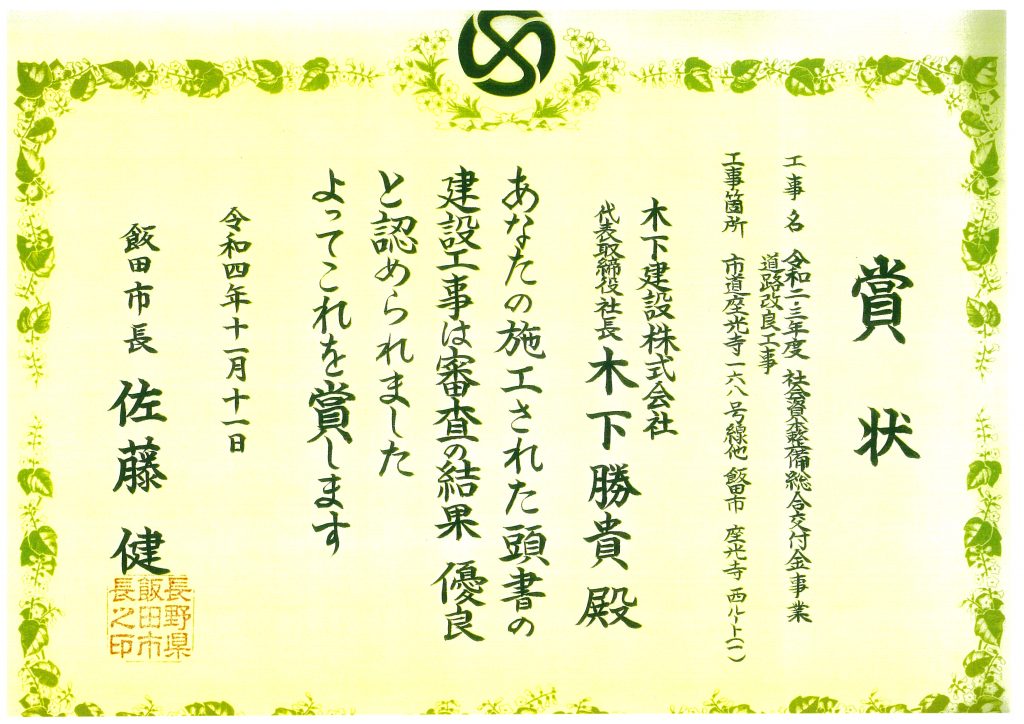 賞状
工事名 令和二・三年度 社会資本整備総合交付金事業
道路改良工事
工事箇所 市道座光寺一六八号線他 飯田市 座光寺 西ルート(一)
木下建設株式会社
代表取締役社長 木下勝貴 殿
あなたの施工された頭書の
建設工事は審査の結果 優良
と認められました
よってこれを賞します
令和四年十一月十一日
飯田市長 佐藤健
長野県
飯田市
長之印